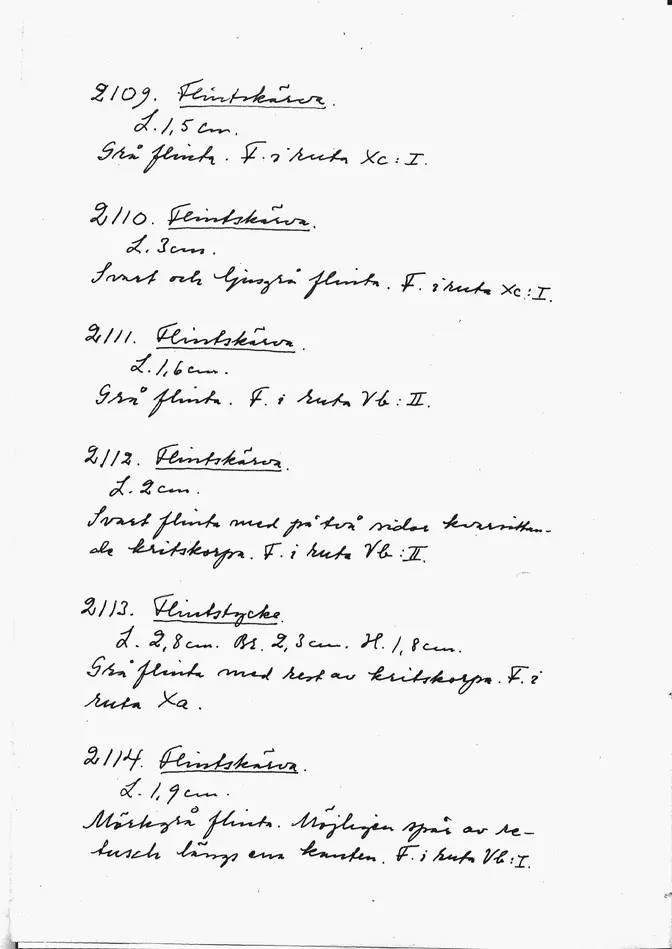 2109. Flintskärva.
L. 1,5 cm.
Grå flinta. F. i ruta Xc : I.
2110. Flintskärva.
L. 3 cm.
Svart och ljusgrå flinta. F. i ruta Xc : I.
2111. Flintskärva.
L. 1,6 cm.
Grå flinta. F. i ruta Vb : II.
2112. Flintskärva.
L. 2 cm.
Svart flinta med på två sidor kvarsittan-
de kritskorpa. F. i ruta Vb : II.
2113. Flintstycke.
L. 2,8 cm. Br. 2,3 cm. H. 1,8 cm.
Grå flinta med rest av kritskorpa. F. i
ruta Xa.
2114. Flintskärva.
L. 1,9 cm.
Mörkgrå flinta. Möjligen spår av re-
tusch längs ena kanten. F. i ruta Vb : I.